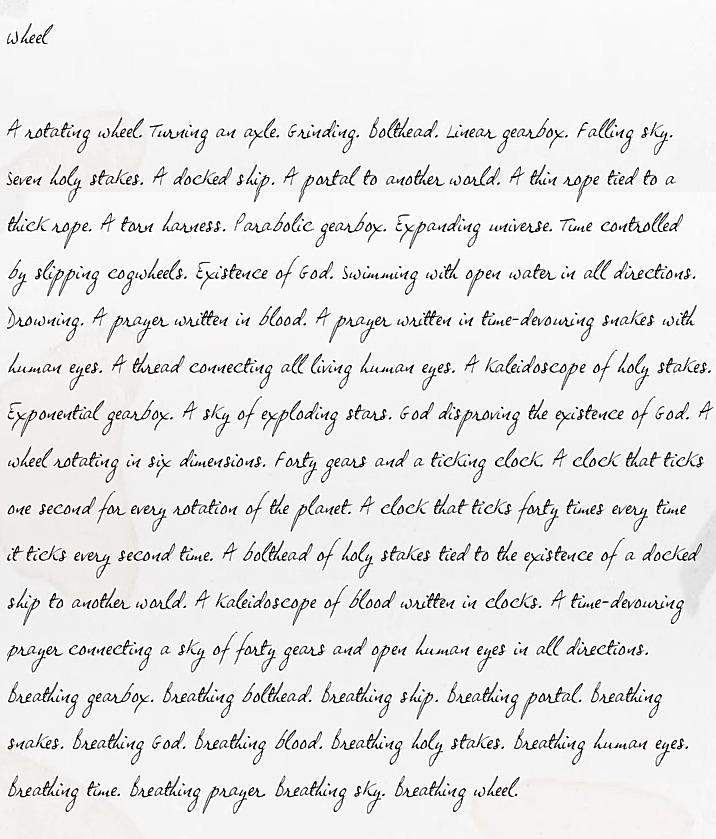 wheel
A rotating wheel. Turning an axle. Grinding. Bolthead. Linear gearbox. Falling sky.
Seven holy stakes. A docked ship. A portal to another world. A thin rope tied to a
thick rope. A torn harness. Parabolic gearbox. Expanding universe. Time controlled
by slipping cogwheels. Existence of God. Swimming with open water in all directions.
Drowning. A prayer written in blood. A prayer written in time-devouring snakes with
human eyes. A thread connecting all living human eyes. A kaleidoscope of holy stakes.
Exponential gearbox. A sky of exploding stars. God disproving the existence of God. A
wheel rotating in six dimensions. Forty gears and a ticking clock. A clock that ticks
one second for every rotation of the planet. A clock that ticks forty times every time
it ticks every second time. A bolthead of holy stakes tied to the existence of a docked
ship to another world. A kaleidoscope of blood written in clocks. A time-devouring
prayer connecting a sky of forty gears and open human eyes in all directions.
Breathing gearbox. Breathing bolthead. Breathing ship. Breathing portal. Breathing
snakes. Breathing God. Breathing blood. Breathing holy stakes. Breathing human eyes.
Breathing time. Breathing prayer. Breathing sky. Breathing wheel.